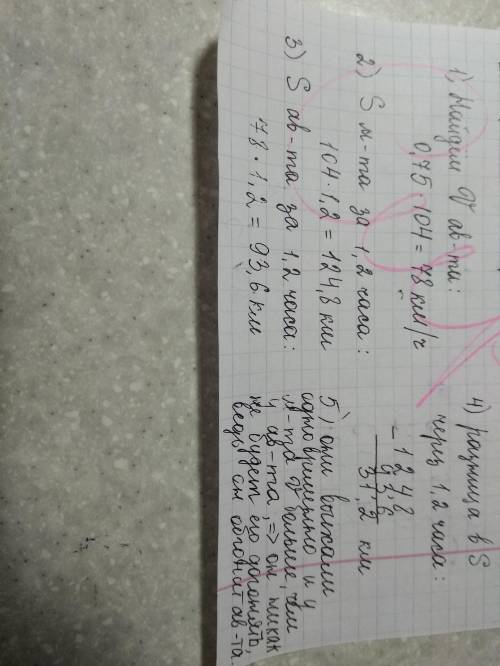 1) Найдём V ав-та:
0,75 · 104 = 78 км/ч
2) S м-та за 1,2 часа:
104 · 1,2 = 124,8 км
3) S ав-та за 1,2 часа:
78 · 1,2 = 93,6 км
4) разница в S
через 1,2 часа:
- 124,8
93,6
31,2 км
5) они выехали
одновременно и у
м-та V больше, чем
у ав-та, => он никак
не будет его догонять,
ведь он обгонит ав-та.